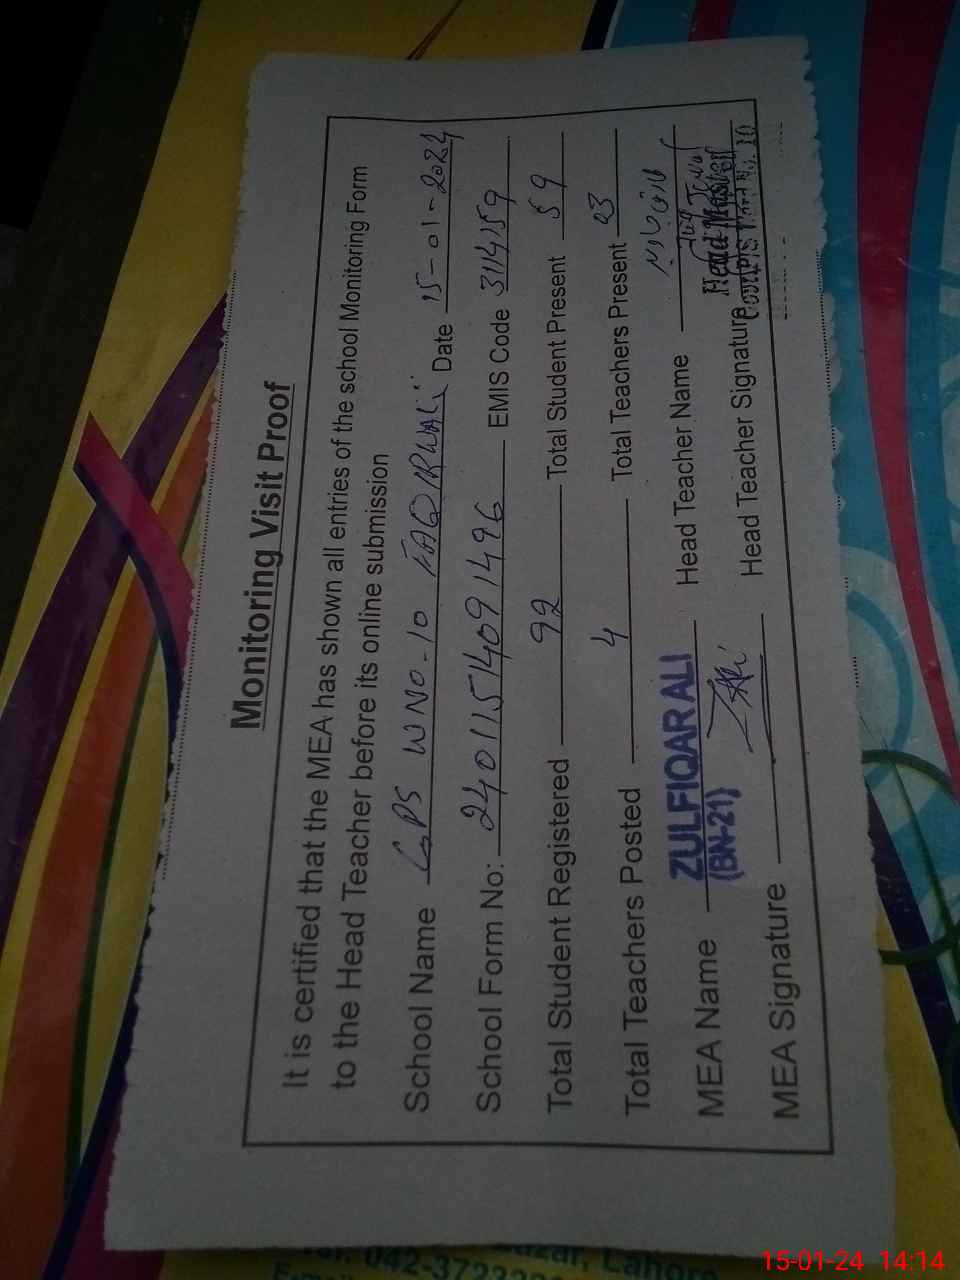 Monitoring Visit Proof
It is certified that the MEA has shown all entries of the school Monitoring Form
to the Head Teacher before its online submission
School Name GPS W NO-10 FAQIRWALi Date 15-01-2024
School Form No: 240115140914 96 EMIS Code 3114159
Total Student Registered 92 Total Student Present 59
Total Teachers Posted 4 Total Teachers Present 03
MEA Name ZULFIQAR ALI Head Teacher Name
(BN-21) Head Master
MEA Signature Head Teacher Signature
042-372322
Lahore
15-01-24 14:14